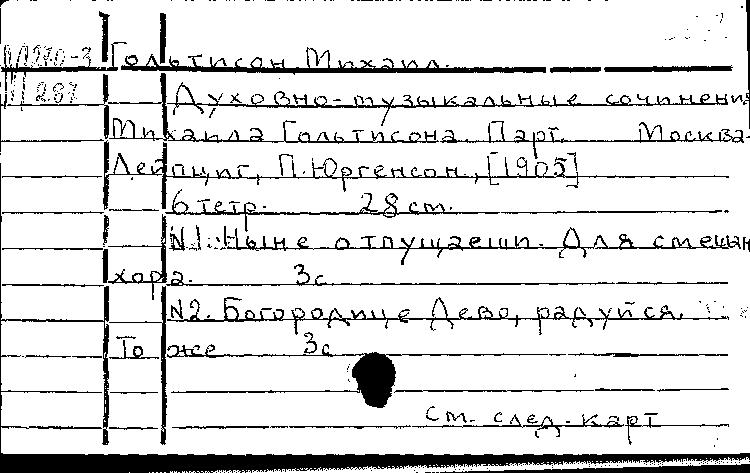 М270-3 Гольтисон, Михаил.
М 287
Духовно-музыкальные сочинения
Михаила Гольтисона. Парт. Москва-
Лейпциг, П. Юргенсон, [1905]
6 тетр. 28 см.
N1. Ныне отпущаеши. Для смешан
хора. 3с
N2. Богородице Дево, радуйся.
То же 3с
См. след. карт